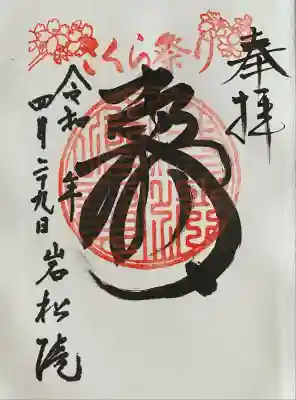 さくら祭り
奉拝
寿
令和 年
四月二十九日
岩松院